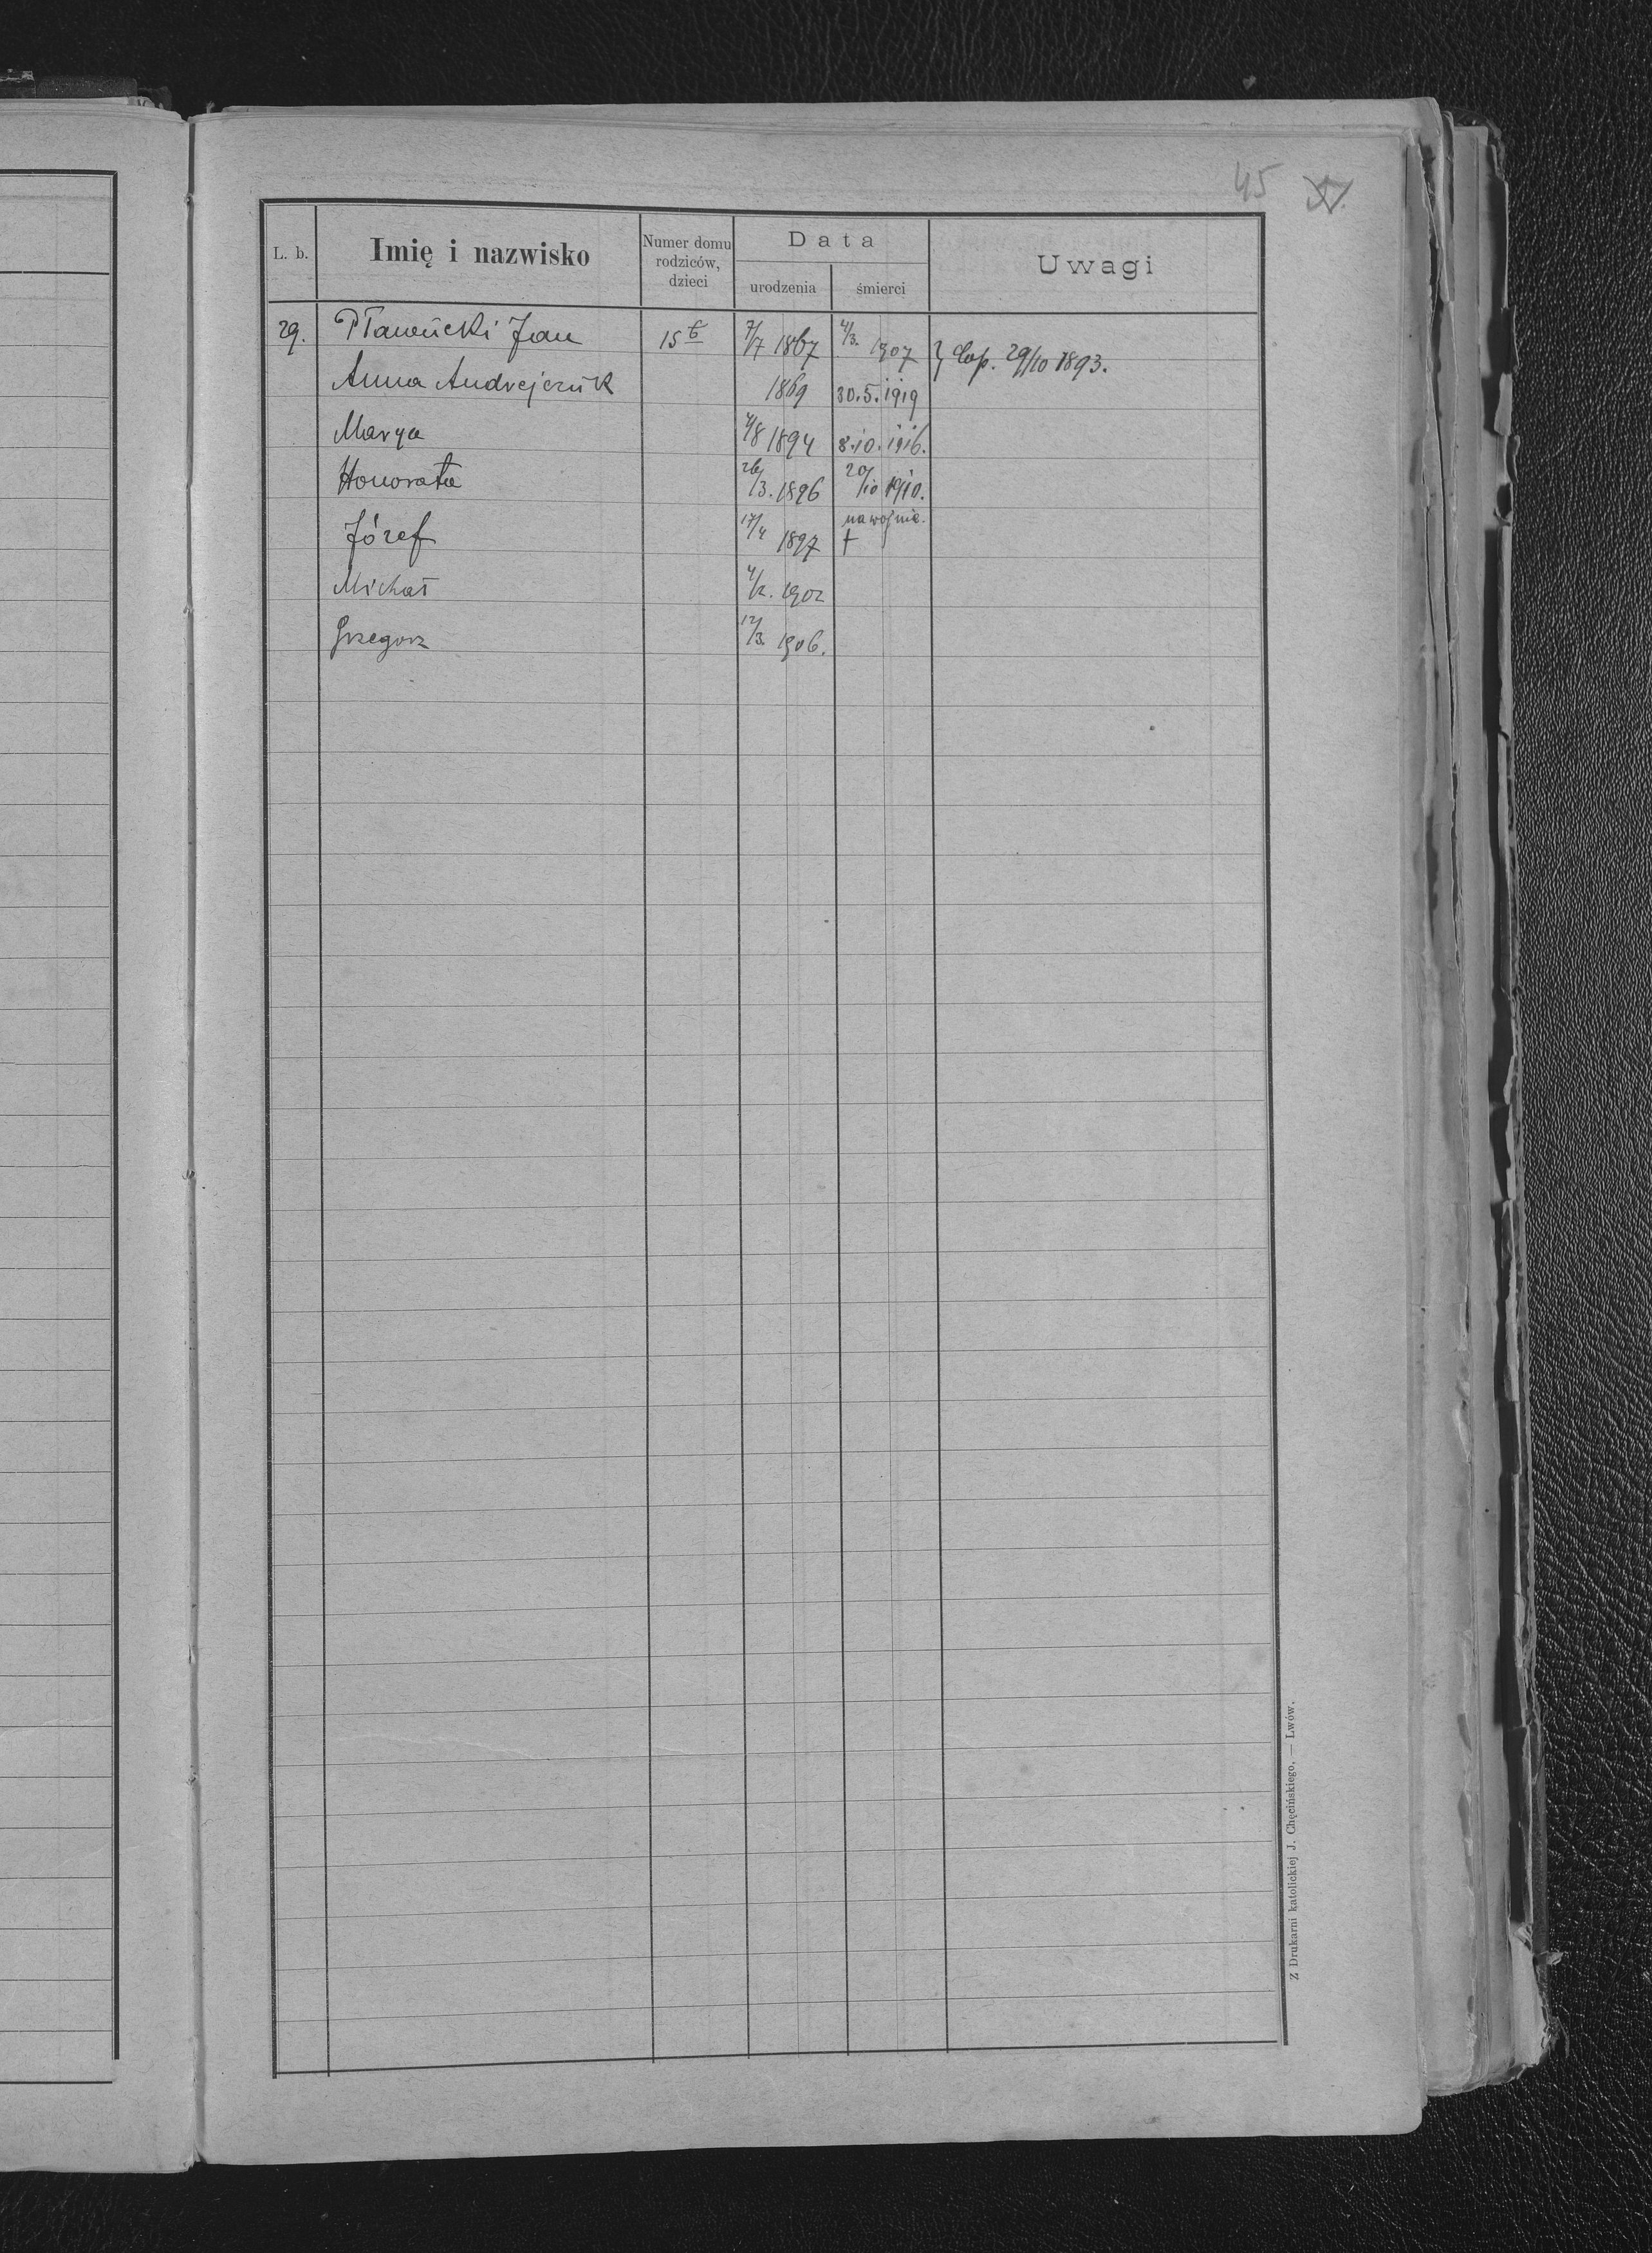 45
L. b. Imię i nazwisko Numer domu rodziców, dzieci Data urodzenia śmierci Uwagi
29. Jan 15 7/7 1867 4/3. 1907 } Cop. 29/10 1893.
Anna Andrejczuk 1869 30.5.1919
Marya 4/8 1894 8.10.1916.
Honorata 26/3. 1896 20/10 1910.
Józef 17/4 1897 na wojnie. †
Michał 4/2. 1902
Grzegorz 12/3. 1906.
Z Drukarni katolickiej J. Chęcińskiego, — Lwów.